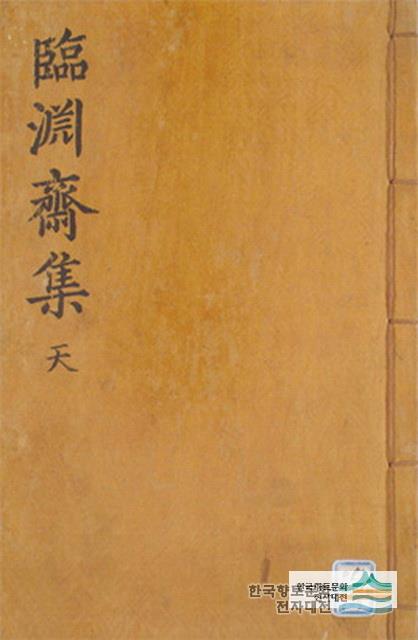 臨淵齋集 天
한국향토문화
전자대전
한국향토문화
전자대전